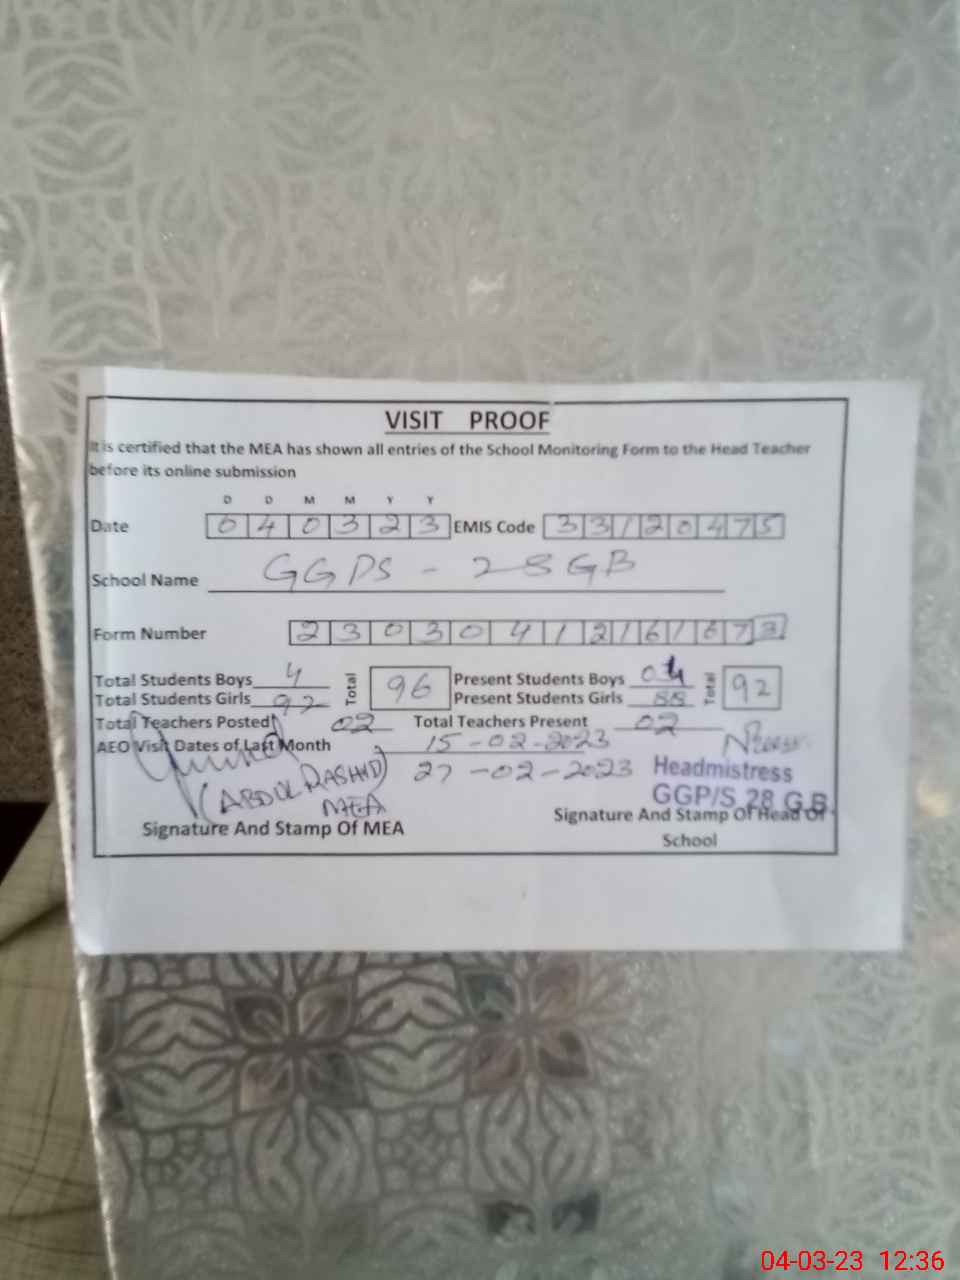 VISIT PROOF
It is certified that the MEA has shown all entries of the School Monitoring Form to the Head Teacher
before its online submission
D D M M Y Y
Date 0 4 0 3 2 3 EMIS Code 3 3 1 2 0 4 7 5
School Name GGPS - 28 GB
Form Number 2 3 0 3 0 4 1 2 6 1 6 7 3
Total Students Boys 4 Total 96 Present Students Boys 04 Total 92
Total Students Girls 92 Present Students Girls 88
Total Teachers Posted 02 Total Teachers Present 02
AEO Visit Dates of Last Month 15-02-2023
27-02-2023
(ABDUL RASHID)
MEA
Headmistress
GGP/S 28 G.B.
Signature And Stamp Of MEA
Signature And Stamp Of Head Of
School
04-03-23 12:36